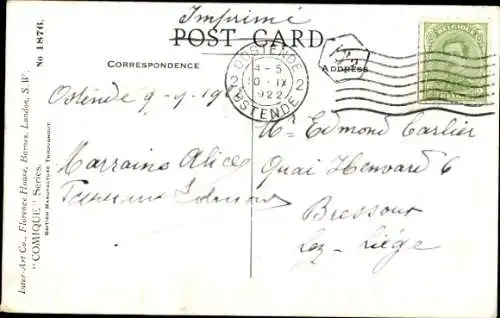 Imprimé
POST CARD
CORRESPONDENCE
ADDRESS
OOSTENDE
2 4-5 2
10 IX
1922
OSTENDE
Ostende 9-9-192
Marraine Alice
Mr Edmond Carlier
Quai Henvard 6
Bressoux
Lez-Liége
No 1876.
Inter-Art Co., Florence House, Barnes, London, S.W.
"COMIQUE" Series.
BRITISH MANUFACTURE THROUGHOUT.